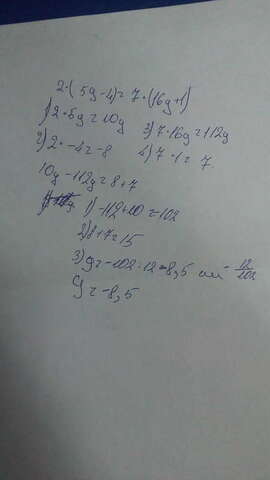 2·(5y-4)=7·(16y+1)
1) 2·5y=10y 3) 7·16y=112y
2) 2·-4=-8 4) 7·1=7
10y-112y=8+7
1) -112+10=102
2) 8+7=15
3) y=-102:12=-8,5 или -12/102
y=-8,5